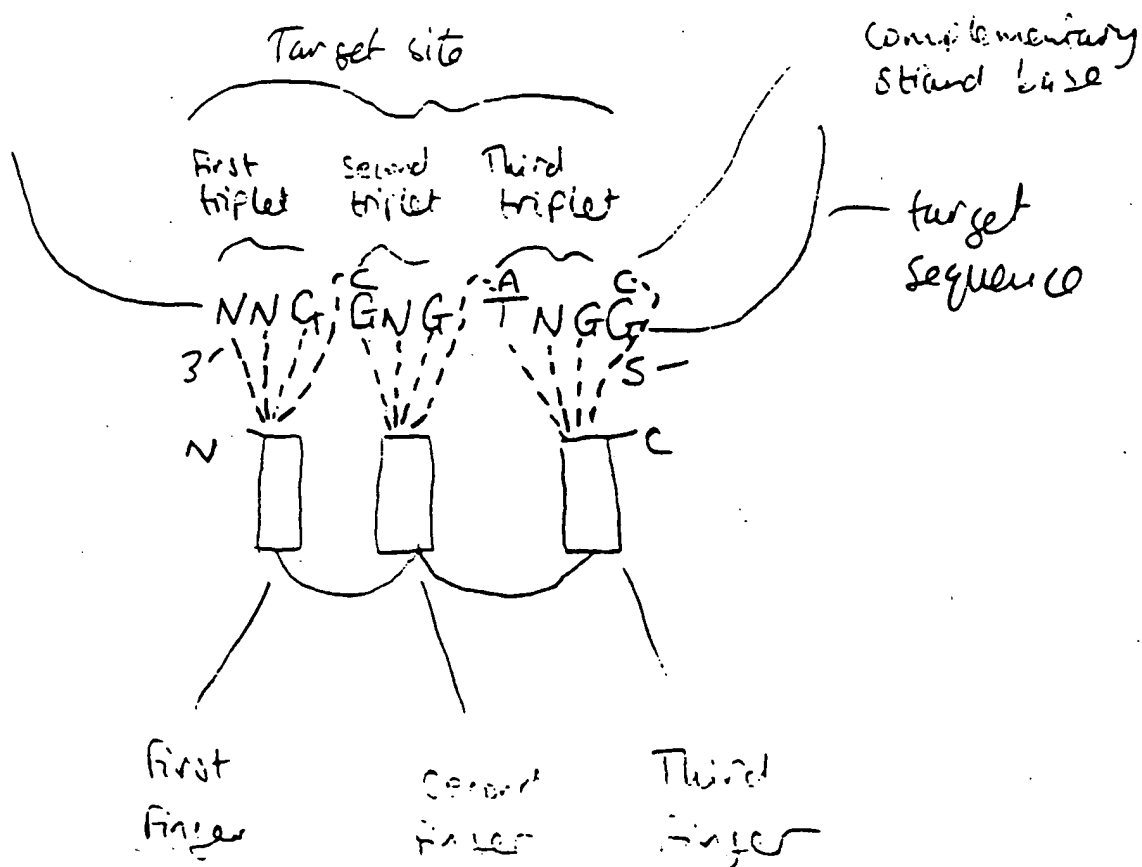 Target site
complementary
strand base
First
triplet
second
triplet
Third
triplet
target
sequence
C A C
N N G G N G T N G G
3' 5'
N C
First
Finger
Second
Finger
Third
Finger